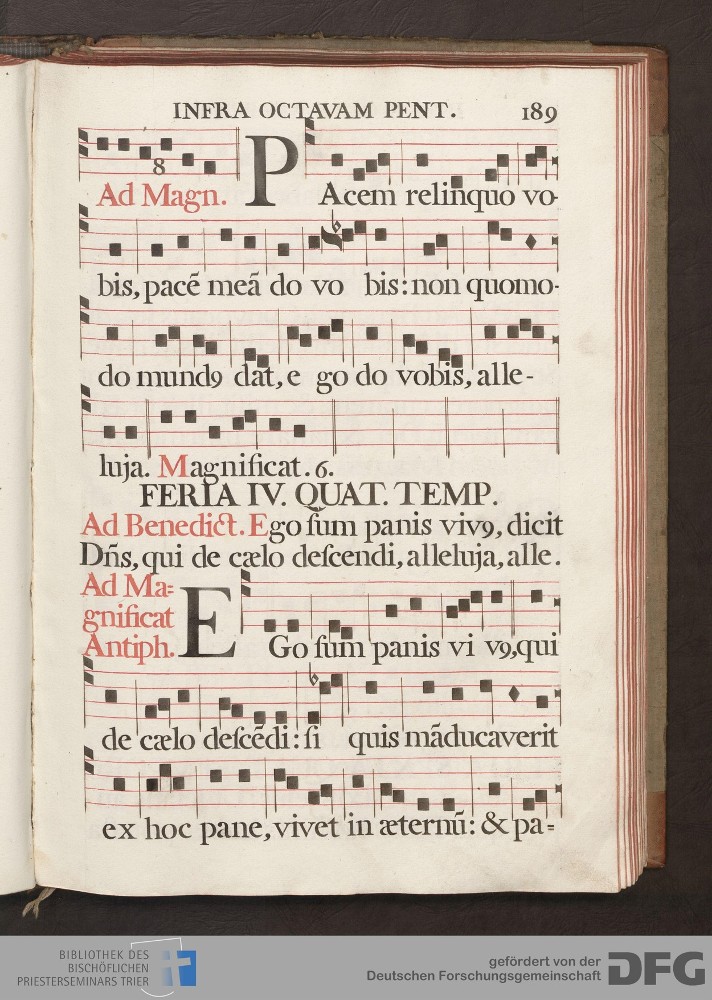 INFRA OCTAVAM PENT. 189
8
Ad Magn. PAcem relinquo vo-
bis, pacẽ meã do vo bis: non quomo-
do mundꝰ dat, e go do vobis, alle-
luja. Magnificat. 6.
FERIA IV. QUAT. TEMP.
Ad Benedict. Ego ſum panis vivꝰ, dicit
Dñs, qui de cælo deſcendi, alleluja, alle.
Ad Ma=
gnificat
Antiph. EGo ſum panis vi vꝰ, qui
de cælo deſcẽdi: ſi quis mãducaverit
ex hoc pane, vivet in æternũ: & pa=
BIBLIOTHEK DES
BISCHÖFLICHEN
PRIESTERSEMINARS TRIER
gefördert von der
Deutschen Forschungsgemeinschaft DFG